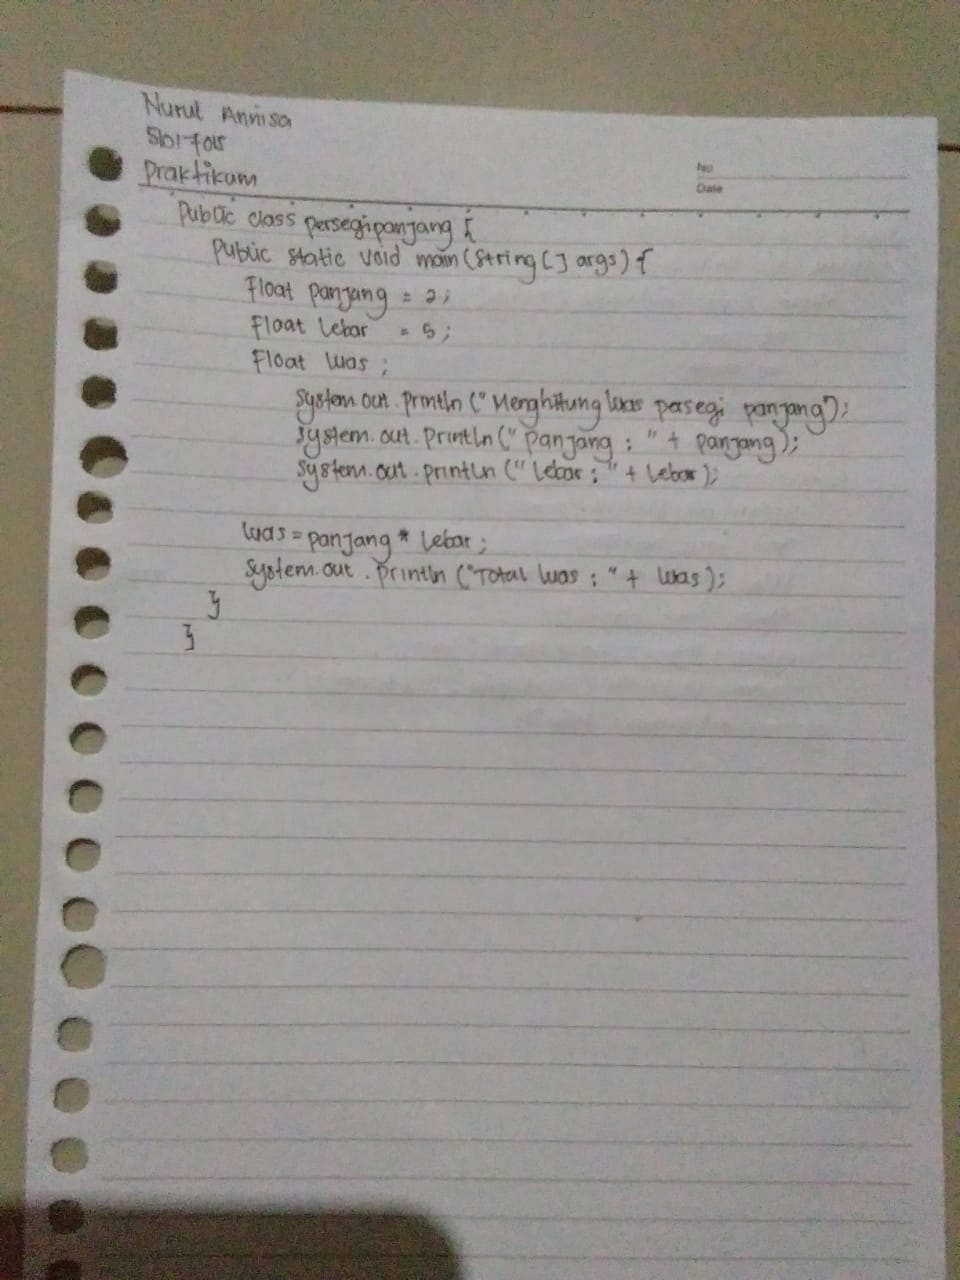 Nurul Annisa
Praktikum
No
Date
Public class persegipanjang {
Public static void main (String [] args) {
Float panjang = 2;
Float lebar = 5;
Float luas;
System.out.println ("Menghitung luas persegi panjang");
System.out.println ("panjang : " + panjang);
System.out.println ("lebar : " + lebar);
luas = panjang * lebar;
System.out.println ("Total luas : " + luas);
}
}